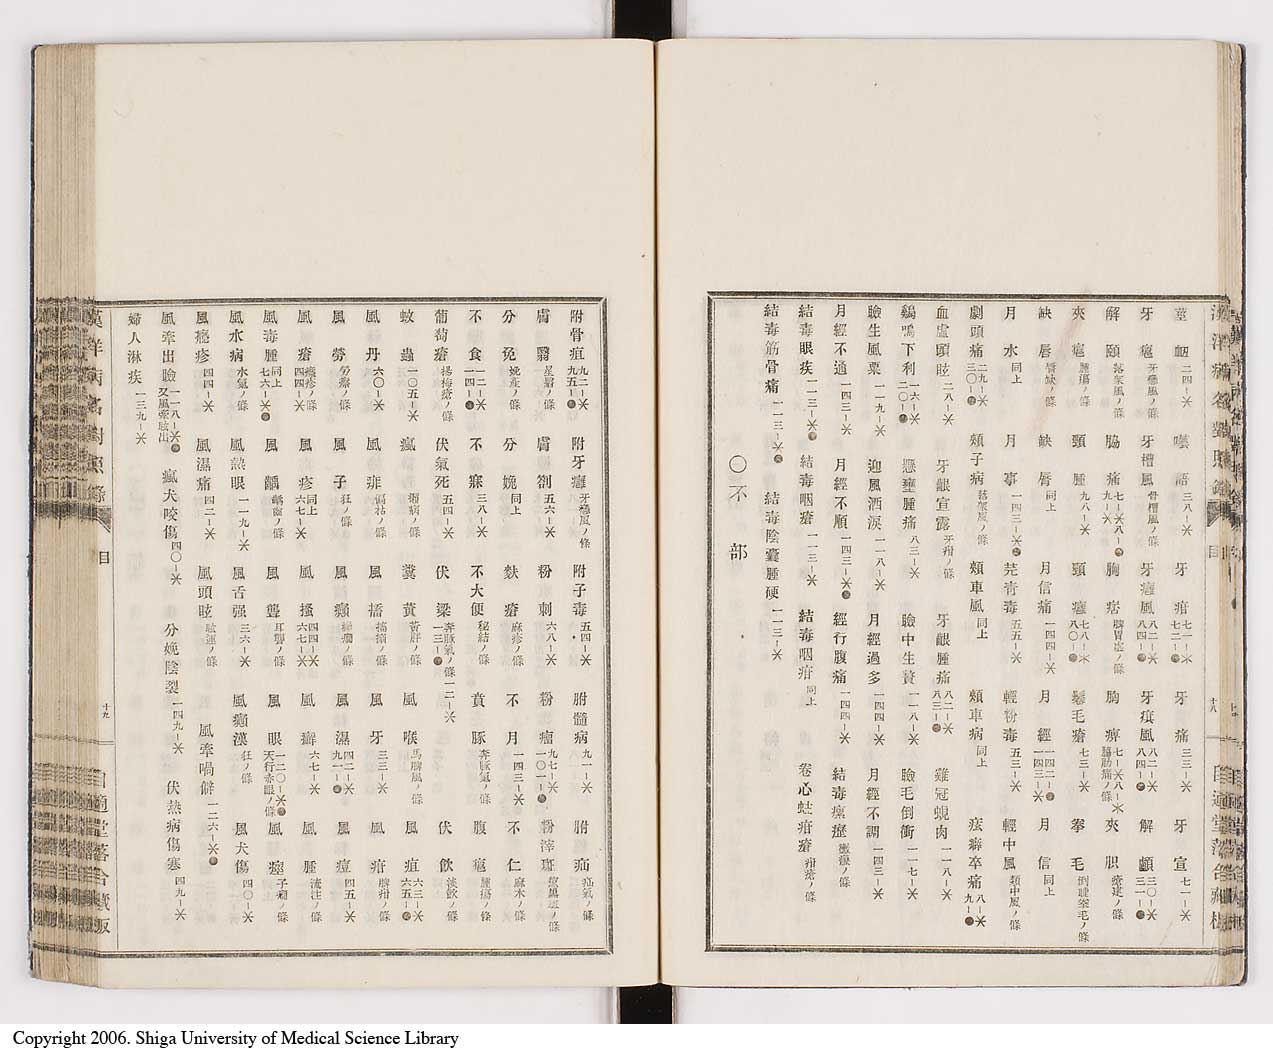 衂 二四ー＊ 囈語 三八ー＊ 牙疳 七一ー＊七二ー● 牙痛 三三ー＊ 牙宣 七一ー＊
牙疤 牙癰風ノ條 牙槽風 骨槽風ノ條 牙癰風 八二ー＊八四ー● 牙痰風 八二ー＊八四ー● 解顱 三〇ー＊三一ー●
解頤 落架風ノ條 脇痛 七ー＊八ー● 胸痞 脾胃虛ノ條 胸痺 脇肋痛ノ條 夾胆
夾疤 腫瘍ノ條 頸腫 九八ー＊ 頸癰 七八ー＊八〇ー● 鬆毛瘡 七三ー＊ 拳毛 倒睫拳毛ノ條
缺唇 唇缺ノ條 缺脣 同上 月信痛 一四四ー＊ 月經 一四二ー●一四三ー＊ 月信 同上
月水 同上 月事 一四三ー＊ 芫靑毒 五五ー＊ 輕粉毒 五三ー＊ 輕中風 類中風ノ條
劇頭痛 二九ー＊三〇ー● 頰子病 落架風ノ條 頰車風 同上 頰車病 同上 痃癖卒痛 八ー＊九ー●
血虛頭眩 二八ー＊ 牙齦宣露 牙疳ノ條 牙齦腫痛 八二ー＊八三ー● 雞冠蜆肉 一一八ー＊
鷄鳴下利 一六ー＊二〇ー● 懸壅腫痛 八三ー＊ 瞼中生贅 一一八ー＊ 瞼毛倒衝 一一七ー＊
瞼生風粟 一一九ー＊ 迎風洒淚 一一八ー＊ 月經過多 一四四ー＊ 月經不調 一四三ー＊
月經不通 一四三ー＊ 月經不順 一四三ー＊● 經行腹痛 一四四ー＊ 結毒瘰癧
結毒眼疾 一一三ー＊● 結毒咽瘡 一一三ー＊ 結毒咽疳 同上 卷心蛀疳瘡 疳瘡ノ條
結毒筋骨痛 一一三ー＊● 結毒陰囊腫硬 一一三ー＊
〇不部
十八
附骨疽 九二ー＊九五ー● 附牙癰 牙癰風ノ條 附子毒 五四ー＊ 胕髓病 九一ー＊ 胕疝 疝氣ノ條
膚翳 星翳ノ條 膚劄 五六ー＊ 粉刺 六八ー＊ 粉瘤 九七ー＊一〇一ー● 粉滓斑
分免 娩產ノ條 分娩 同上 麩瘡 麻疹ノ條 不月 一四三ー＊ 不仁 麻木ノ條
不食 一二ー＊一四ー● 不寐 三八ー＊ 不大便 秘結ノ條 賁豚 奔豚氣ノ條 腹疤 腫瘍ノ條
葡萄瘡 楊梅瘡ノ條 伏氣死 五四ー＊ 伏梁 奔豚氣ノ條 一二ー＊一三ー● 伏飮 痰飮ノ條
蚊蟲 一〇五ー＊ 瘋 癎病ノ條 糞黃 黃胖ノ條 風喉 馬脾風ノ條 風疽 六三ー＊六五ー●
風丹 六〇ー＊ 風痱 偏枯ノ條 風搐 搐搦ノ條 風牙 三三ー＊ 風疳 脾疳ノ條
風勞 勞瘵ノ條 風子 狂ノ條 風癲 癲癇ノ條 風濕 四二ー＊九一ー● 風痘 四五ー＊
風瘡 癮疹ノ條四四ー＊ 風疹 同上六七ー＊ 風搔 四四ー＊六七ー＊ 風癬 六七ー＊ 風腫 流注ノ條
風毒腫 同上七六ー＊● 風齲 齲齒ノ條 風聾 耳聾ノ條 風眼 一二〇ー＊●天行赤眼ノ條 風痙 子癇ノ條
風水病 水氣ノ條 風熱眼 一一九ー＊ 風舌强 三六ー＊ 風癲漢 狂ノ條 風犬傷 四〇ー＊
風癮疹 四四ー＊ 風濕痛 四二ー＊ 風頭眩 眩運ノ條 風牽喎僻 一二六ー＊●
風牽出瞼 一一八ー＊●又風牽眩出 瘋犬咬傷 四〇ー＊ 分娩陰裂 一四九ー＊ 伏熱病傷寒 四九ー＊
婦人淋疾 一三九ー＊
漢洋病名對照錄 目 十九 落合藏版
Copyright 2006. Shiga University of Medical Science Library